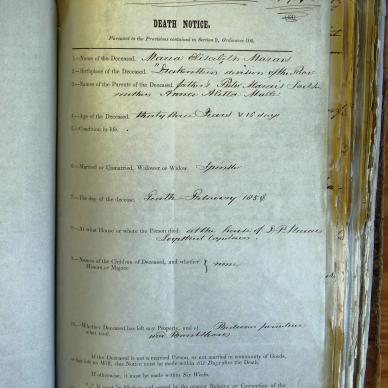 DEATH NOTICE.
Pursuant to the Provisions contained in Section 9, Ordinance 104.
1.—Name of the Deceased. Maria Elizabeth Marais
2.—Birthplace of the Deceased. division of the Paarl
3.—Names of the Parents of the Deceased. father's Pieter Marais Jacob's
mother's Anna Aletta Malle
4.—Age of the Deceased. thirty three Years & 15 days
5.—Condition in life.
6.—Married or Unmarried, Widower or Widow. Spinster
7.—The day of the decease. Tenth February 1858
8.—At what House or where the Person died. at the house of J. P. Marais
9.—Names of the Children of Deceased, and whether
Minors or Majors. } none
10.—Whether Deceased has left any Property, and of
what kind.
If the Deceased is not a married Person, or not married in community of Goods,
has left no Will, this Notice must be made within Six Days after the Death.
If otherwise, it must be made within Six Weeks.
It must be filled up and signed by the nearest Relative or Connection of the